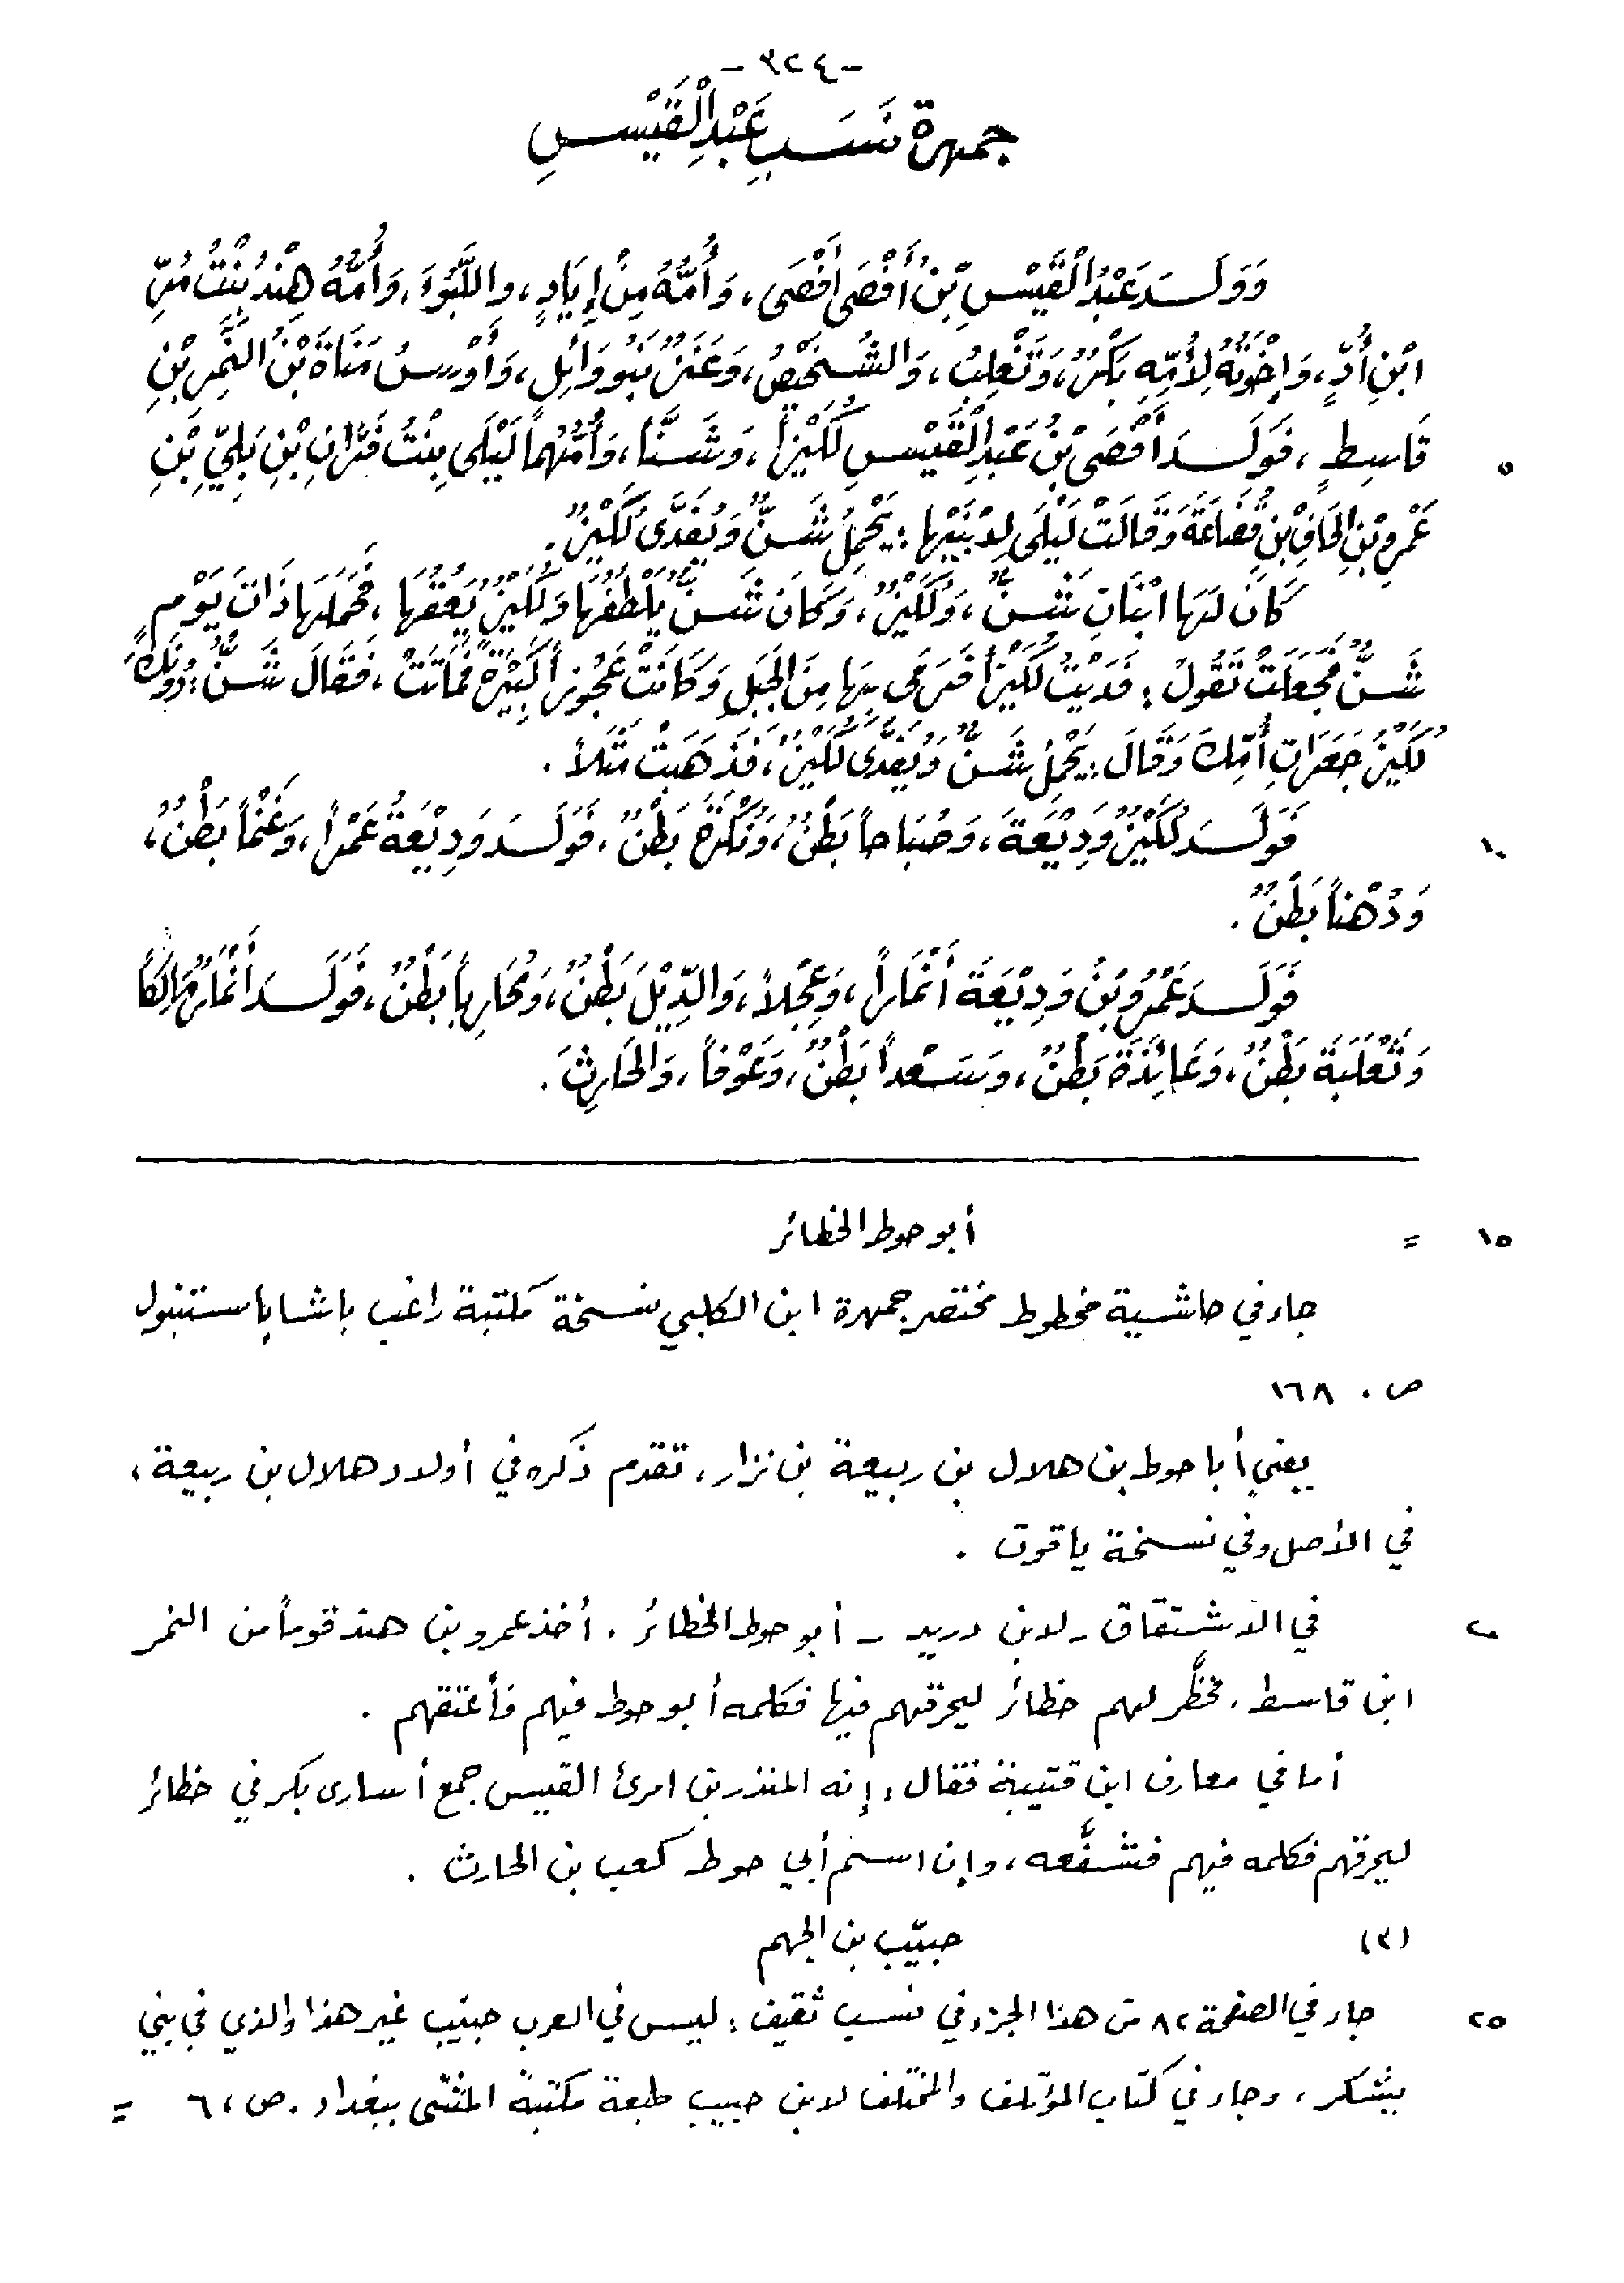 -٣٢٤-
جمهرة نَسَبِ عَبْدِ الْقَيْسِ
وَوَلَدَ عَبْدُ الْقَيْسِ بْنُ أَفْصَى أَفْصَى، وَأُمُّهُ مِنْ إِيَادٍ، وَاللَّبُوَءَ، وَأُمُّهُ هِنْدُ بِنْتُ مُرِّ
ابْنِ أُدٍّ، وَإِخْوَتُهُ لِأُمِّهِ بَكْرٌ، وَتَغْلِبُ، وَالشُّخَيْصُ، وَعَنَزٌ بَنُو وَائِلٍ، وَأَوْسُ مَنَاةَ بْنُ النَّمِرِ بْنِ
٥ قَاسِطٍ، فَوَلَدَ أَفْصَى بْنُ عَبْدِ الْقَيْسِ لُكَيْزاً، وَشَنّاً، وَأُمُّهُمَا لَيْلَى بِنْتُ فَرَّانِ بْنِ بَلِيِّ بْنِ
عَمْرِو بْنِ الحَافِ بْنِ قُضَاعَةَ وَقَالَتْ لَيْلَى لِابْنَيْهَا: يَحْمِلُ شَنٌّ وَيُفَدَّى لُكَيْزٌ.
كَانَ لَهَا ابْنَانِ شَنٌّ، وَلُكَيْزٌ، وَكَانَ شَنٌّ يُلْطِفُهَا وَلُكَيْزٌ يَعُقُّهَا، فَحَمَلَهَا ذَاتَ يَوْمٍ
شَنٌّ فَجَعَلَتْ تَقُولُ: فَدَيْتُ لُكَيْزاً فَرَمَى بِهَا مِنَ الجَبَلِ وَكَانَتْ عَجُوزاً كَبِيْرَةً فَمَاتَتْ، فَقَالَ شَنٌّ: دُونَكَ
لُكَيْزُ جَعَرَاتِ أُمِّكَ وَقَالَ: يَحْمِلُ شَنٌّ وَيُفَدَّى لُكَيْزٌ، فَذَهَبَتْ مَثَلاً.
١٠ فَوَلَدَ لُكَيْزٌ وَدِيْعَةَ، وَصُبَاحاً بَطْنٌ، وَنُكْرَةَ بَطْنٌ، فَوَلَدَ وَدِيْعَةُ عَمْراً، وَغَنْماً بَطْنٌ،
وَدُهْناً بَطْنٌ.
فَوَلَدَ عَمْرُو بْنُ وَدِيْعَةَ أَنْمَاراً، وَعِجْلاً، وَالدِّيْلَ بَطْنٌ، وَمُحَارِباً بَطْنٌ، فَوَلَدَ أَنْمَارٌ مَالِكاً
وَثَعْلَبَةَ بَطْنٌ، وَعَائِذَةَ بَطْنٌ، وَسَعْداً بَطْنٌ، وَعَوْفاً، وَالحَارِثَ.
١٥ = أبو حوط الحظائر
جاء في حاشية مخطوط مختصر جمهرة ابن الكلبي نسخة مكتبة راغب باشا باستنبول
ص. ١٦٨
يعني أبا حوط بن هلال بن ربيعة بن نزار، تقدم ذكره في أولاد هلال بن ربيعة،
في الأصل وفي نسخة ياقوت.
٢٠ في الاشتقاق - لابن دريد - أبو حوط الحظائر. أخذ عمرو بن هند قوماً من النمر
ابن قاسط، فحظَّر لهم حظائر ليحرقهم فيها فكلمه أبو حوط فيهم فأعتقهم.
أما في معارف ابن قتيبة فقال: إنه المنذر بن امرئ القيس جمع أسارى بكر في حظائر
ليحرقهم فكلمه فيهم فشفَّعه، وإن اسم أبي حوط كعب بن الحارث.
(٣) حبيّب بن الجهم
٢٥ جاء في الصفحة ٨٢ من هذا الجزء في نسب ثقيف: ليس في العرب حبيّب غير هذا والذي في بني
يشكر، وجاء في كتاب المؤتلف والمختلف لابن حبيب طبعة مكتبة المثنّى ببغداد. ص، ٦ =